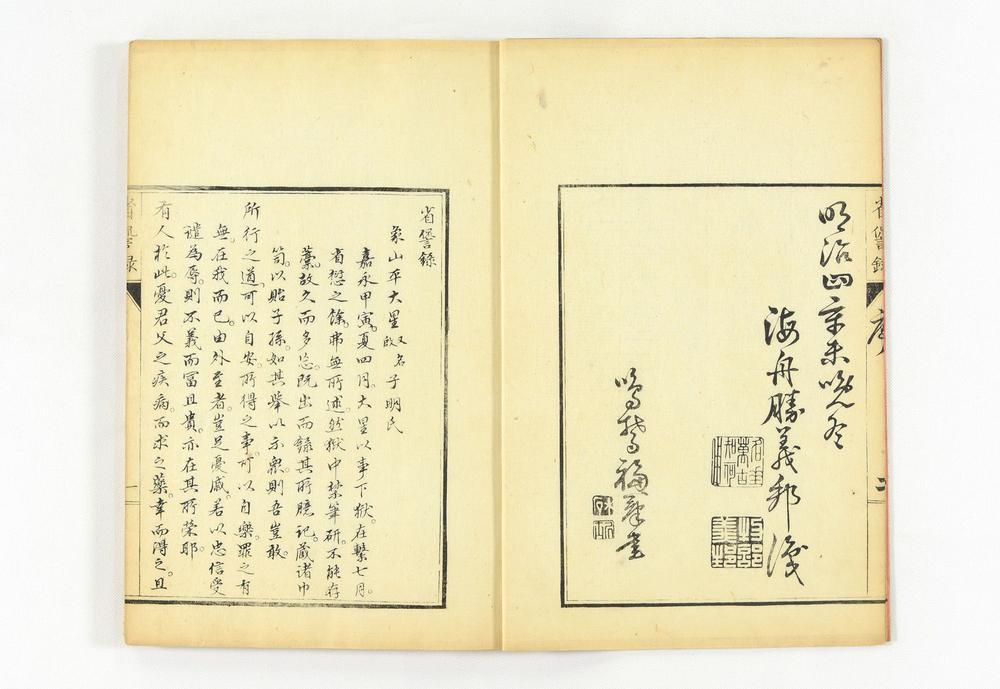 省諐錄 序 二
明治四辛未晩冬
海舟勝義邦識
書
省諐錄
象山平大星 又名啟 子明氏
嘉永甲寅。夏四月。大星以事下獄。在繫七月。
省愆之餘。弗無所述。然獄中禁筆研。不能存
藁。故久而多忘。既出而錄其所臆記。藏諸巾
笥。以貽子孫。如其舉以示衆。則吾豈敢。
所行之道。可以自安。所得之事。可以自樂。罪之有
無。在我而已。由外至者。豈足憂戚。若以忠信受
譴為辱。則不義而富且貴。亦在其所榮耶。
有人於此。憂君父之疾病。而求之藥。幸而得之。且
省諐錄